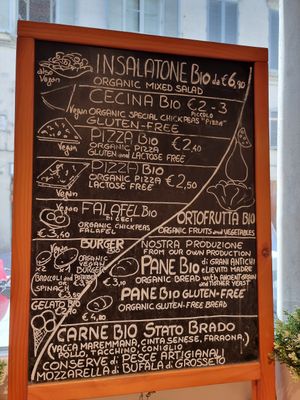 INSALATONE BIO da €6,90
also Vegan
ORGANIC MIXED SALAD
CECINA BIO €2 - 3
PICCOLO
Vegan ORGANIC SPECIAL CHICKPEAS "PIZZA"
GLUTEN-FREE
PIZZA BIO €2,40
ORGANIC PIZZA
GLUTEN AND LACTOSE FREE
Vegan
PIZZA BIO
ORGANIC PIZZA €2,50
LACTOSE FREE
Vegan
FALAFEL BIO
DI CECI
ORGANIC CHICKPEAS
FALAFEL
Vegan
€0,80
ORTOFRUTTA BIO
ORGANIC FRUITS and VEGETABLES
BURGER
BIO
ORGANIC
VEGAN
BURGER
Vegan
BROCCOLI
or
SPINACH
€3,50
NOSTRA PRODUZIONE
FROM OUR OWN PRODUCTION
PANE BIO di GRANI ANTICHI
e LIEVITO MADRE
ORGANIC BREAD WITH ANCIENT GRAIN
AND MOTHER YEAST
PANE BIO GLUTEN-FREE
ORGANIC GLUTEN-FREE BREAD
€4,80
GELATO
CARNE BIO STATO BRADO
(VACCA MAREMMANA, CINTA SENESE, FARAONA,
POLLO, TACCHINO, CONIGLIO)
CONSERVE di PESCE ARTIGIANALI
MOZZARELLA di BUFALA di GROSSETO